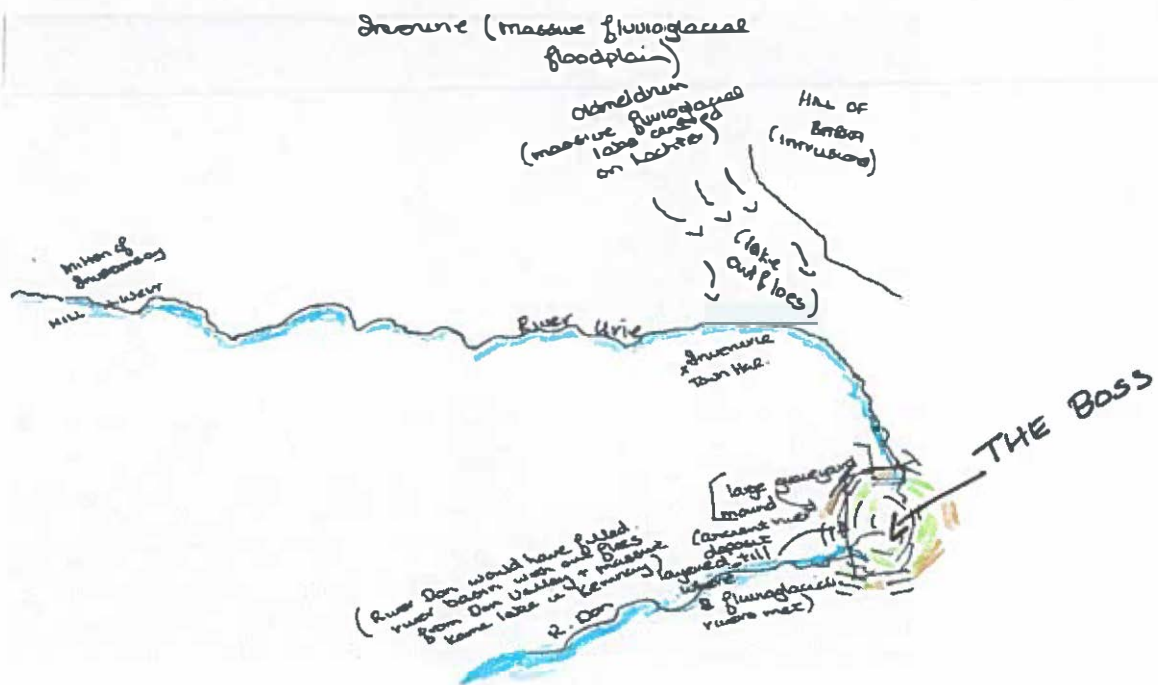 Inverurie (massive fluvioglacial
floodplain)
Oldmeldrum
(massive fluvioglacial
lake centred
on Lochter)
HILL OF
BARRA
(intrusions)
(lake
outflows)
Milton of
Inveramsay
MILL + Weir
River Urie
x Inverurie
Town Hall.
THE BOSS
[large graveyard
mound
(ancient river
deposit
layered till
where
2 fluvioglacial
rivers met)
(River Don would have filled
river basin with outflows
from Don Valley + massive
kame lake in Kemnay)
R. Don